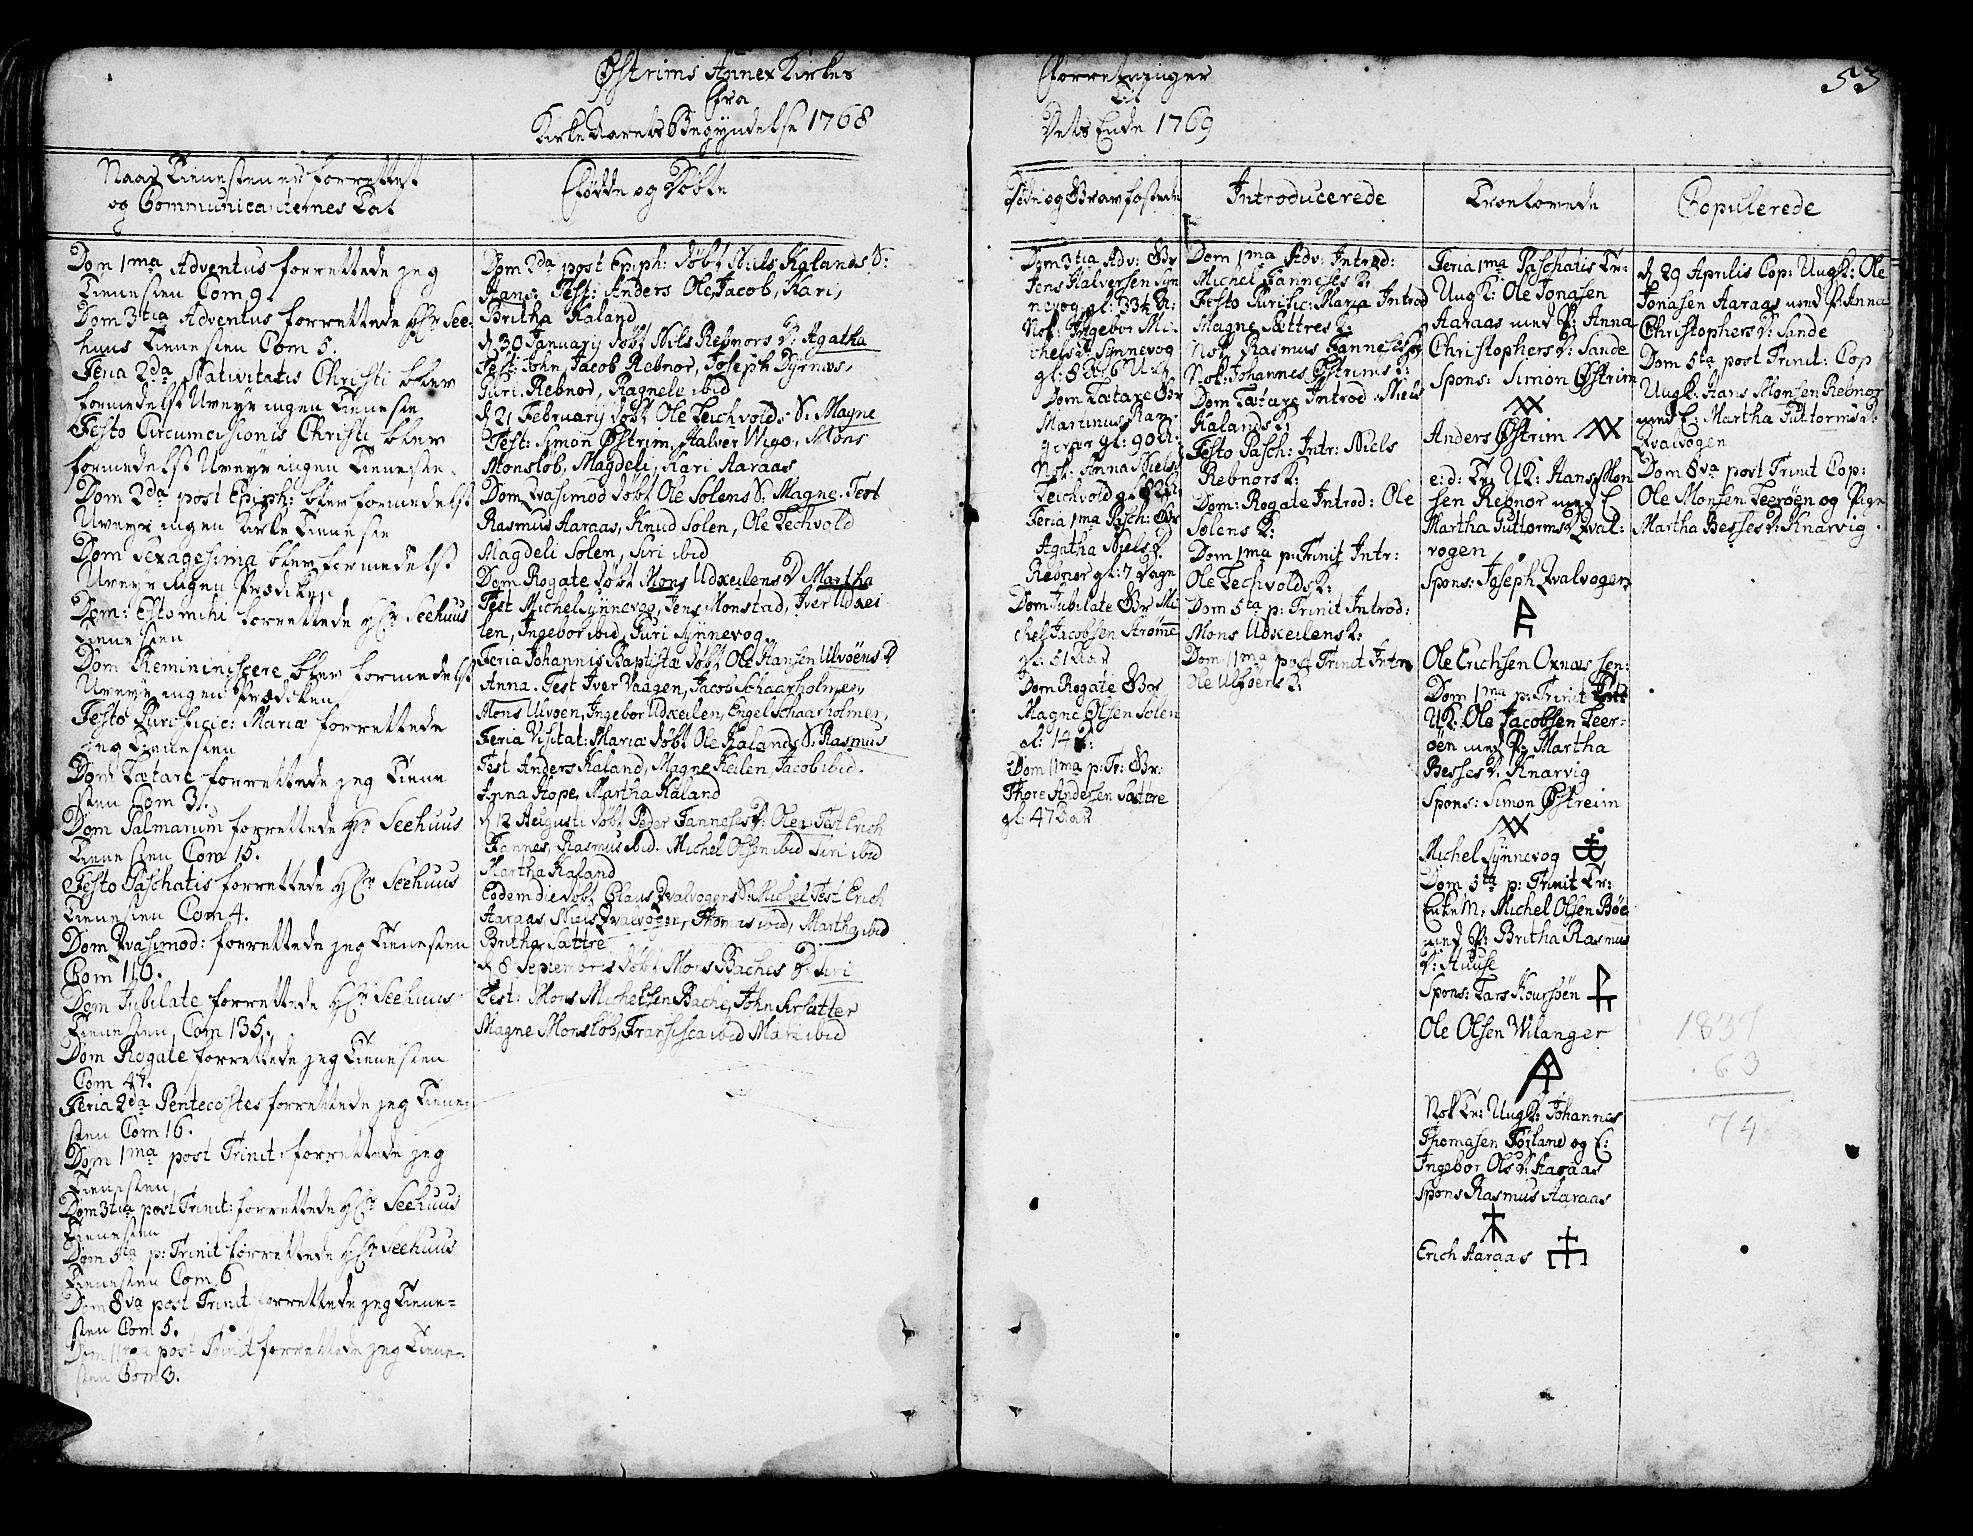 Østrims Annex Kirkes
fra
Kirke Aarets Begyndelse 1768
Forretninger
til
Dets Ende 1769
53
Naar Tienesten er forrettet
og Communicanternes Tal
Dom 1ma Adventus forrettede jeg
Tienesten Com 9.
Dom 3tia Adventus forrettede Hr See-
huus Tienesten Com 5.
Feria 2da Nativitatis Christi blev
formedelst Uveyr ingen Tieneste
Festo Circumcisionis Christi blev
formedelst Uveyr ingen Tieneste.
Dom 2da post Epiph: blev formedelst
Uveyr ingen Kirke Tieneste
Dom Sexagesima blev formedelst
Uveyr ingen Prædiken
Dom: Estomihi forrettede Hr Seehuus
Tienesten
Dom Reminiscere blev formedelst
Uveyr ingen Prædiken
Festo Purificic: Mariæ forrettede
jeg Tienesten
Dom Lætare forrettede jeg Tiene
sten Com 3.
Dom Palmarum forrettede Hr Seehuus
Tienesten Com 15.
Festo Paschatis forrettede Hr Seehuus
Tienesten Com 4.
Dom Qvasimod: forrettede jeg Tienesten
Com 110.
Dom Jubilate forrettede Hr Seehuus
Tienesten Com 135.
Dom Rogate forrettede jeg Tienesten
Com 47.
Feria 2da Pentecostes forrettede jeg Tiene-
sten Com 16.
Dom 1ma post Trinit: forrettede jeg
Tienesten
Dom 3tia post Trinit: forrettede Hr Seehuus
Tienesten
Dom 5ta p: Trinit forrettede Hr Seehuus
Tienesten Com 6
Dom 8va post Trinit forrettede jeg Tiene-
sten Com 5.
Dom 11ma post Trinit forrettede jeg Tiene-
sten Com 3.
Fødde og Døbte
Dom 2da post Epiph: døbt Niels Kalands S:
Hans: Test: Anders Ole, Jacob, Kari,
Britha Kaland
d 30 January døbt Nils Rebnors D: Agatha
Test: John, Jacob Rebnor, Joseph Dyrnæs,
Guri Rebnor, Ragnele ibid
d 21 February døbt Ole Teichvolds S: Magne
Test: Symon Østrym, Halver Wigo, Mons
Monsløb, Magdeli, Kari Aaraas
Dom Qvasimod døbt Ole Solens S: Magne. Test
Rasmus Aaraas, Knud Solen, Ole Techvold
Magdeli Solen, Siri ibid
Dom Rogate døbt Mons Udkeilens D Martha
Test Michel Synnevog, Jens Monstad, Iver Udkei
len, Ingebor ibid, Guri Synnevog
Feria Johannis Baptistæ døbt Ole Hansen Ulvøens D
Anna. Test Iver Vaagen, Jacob Schaarholmen,
Mons Ulvoen, Ingebor Udkeilen, Engel Schaarholmer,
Feria Visitat: Mariæ døbt Ole Kalands S. Rasmus
Test Anders Kaland, Magne Keilen, Jacob ibid.
Anna Kope, Martha Kaland
d 12 Augusti døbt Peder Fanneses D: Olen: Test Erich
Fannes, Rasmus ibid. Michel Olsen ibid Siri ibid
Martha Kaland
Eodem die døbt Claus Qvalvogens S: Michel Test Erich
Aaraas, Niels Qvalvogen, Thomas ibid, Martha ibid
Britha Sattre
d 8 Septembris døbt Mons Baches D. Siri
Test: Mons Michelsen Bache, John Krsatter
Magne Monsløb, Fransisca ibid Mari ibid
Døde og Gravfæstede
Dom 3tia Adv: Gr
Jens Halversen Syn
nevog gl: 33½ A:
Nok: Ingebor Mi-
chels D: Synnevog
gl: 8 U:
Dom Lætare Gr
Martinus Ram-
gl: 90 A:
Nok: Anna Niels:
Teichvold gl 82
Feria 1ma Pasch: Gr
Agatha Niels D.
Rebnor gl: 7 Dage
Dom Jubilate Gr Mi-
chel Jacobsen Strømme
gl: 51 Aar
Dom Rogate Gr
Magne Olsen Solen
gl: 14
Dom 11ma p: Tr: Gr:
Thore Andersen Sattre
gl: 47 Aar
Introducerede
Dom 1ma Adv: Introd:
Michel Fanneses K:
Festo Purific: Mariæ Introd
Magne Sættres K:
Nok Rasmus Fanneses K
Nok: Johannes Østrims K:
Dom Lætare Introd: Niels
Kalands K:
Festo Pasch: Intr: Niels
Rebnors K:
Dom: Rogate Introd: Ole
Solens K:
Dom 1ma p: Trinit Intr:
Ole Techvolds K:
Dom 5ta p: Trinit Introd:
Mons Udkeilens K:
Dom 11ma post Trinit Intr
Ole Ulføens K:
Troelovede
Feria 1ma Paschatis Tr:
Ungk: Ole Jonasen
Aaraas med P: Anna
Christophers D: Sande
Spons: Simon Østrim
Anders Østrim
e: d: Tr: UK: Hans Mon
sen Rebnor med E
Martha Guttorms D Qval-
vogen
Spons: Joseph Qvalvogen
Ole Erichsen Oxnæs sen:
Dom 1ma p: Trinit
UK: Ole Jacobsen Leer-
øen med P: Martha
Besses D: Knarvig
Spons: Simon Østreim
Michel Synnevog
Dom 3ta p: Trinit Tr:
Enke M: Michel Olsen Bøe
med P: Britha Rasmus
D: Huuse
Spons: Lars Kourføen
Ole Olsen Wilanger
Nok Tr: Ungk: Johannes
Thomasen Førland og E:
Ingebor Ols D: Aaraas
Spons Rasmus Aaraas
Erich Aaraas
Copulerede
d 29 Aprilis Cop: Ungk: Ole
Jonasen Aaraas med P: Anna
Christophers D: Sande
Dom 5ta post Trinit: Cop
Ungk: Hans Monsen Rebnor
med E: Martha Guttorms D:
Qvalvogen
Dom 8va post Trinit Cop:
Ole Monsen Leerøen og Pige
Martha Besses D: Knarvig.
1837
63
74